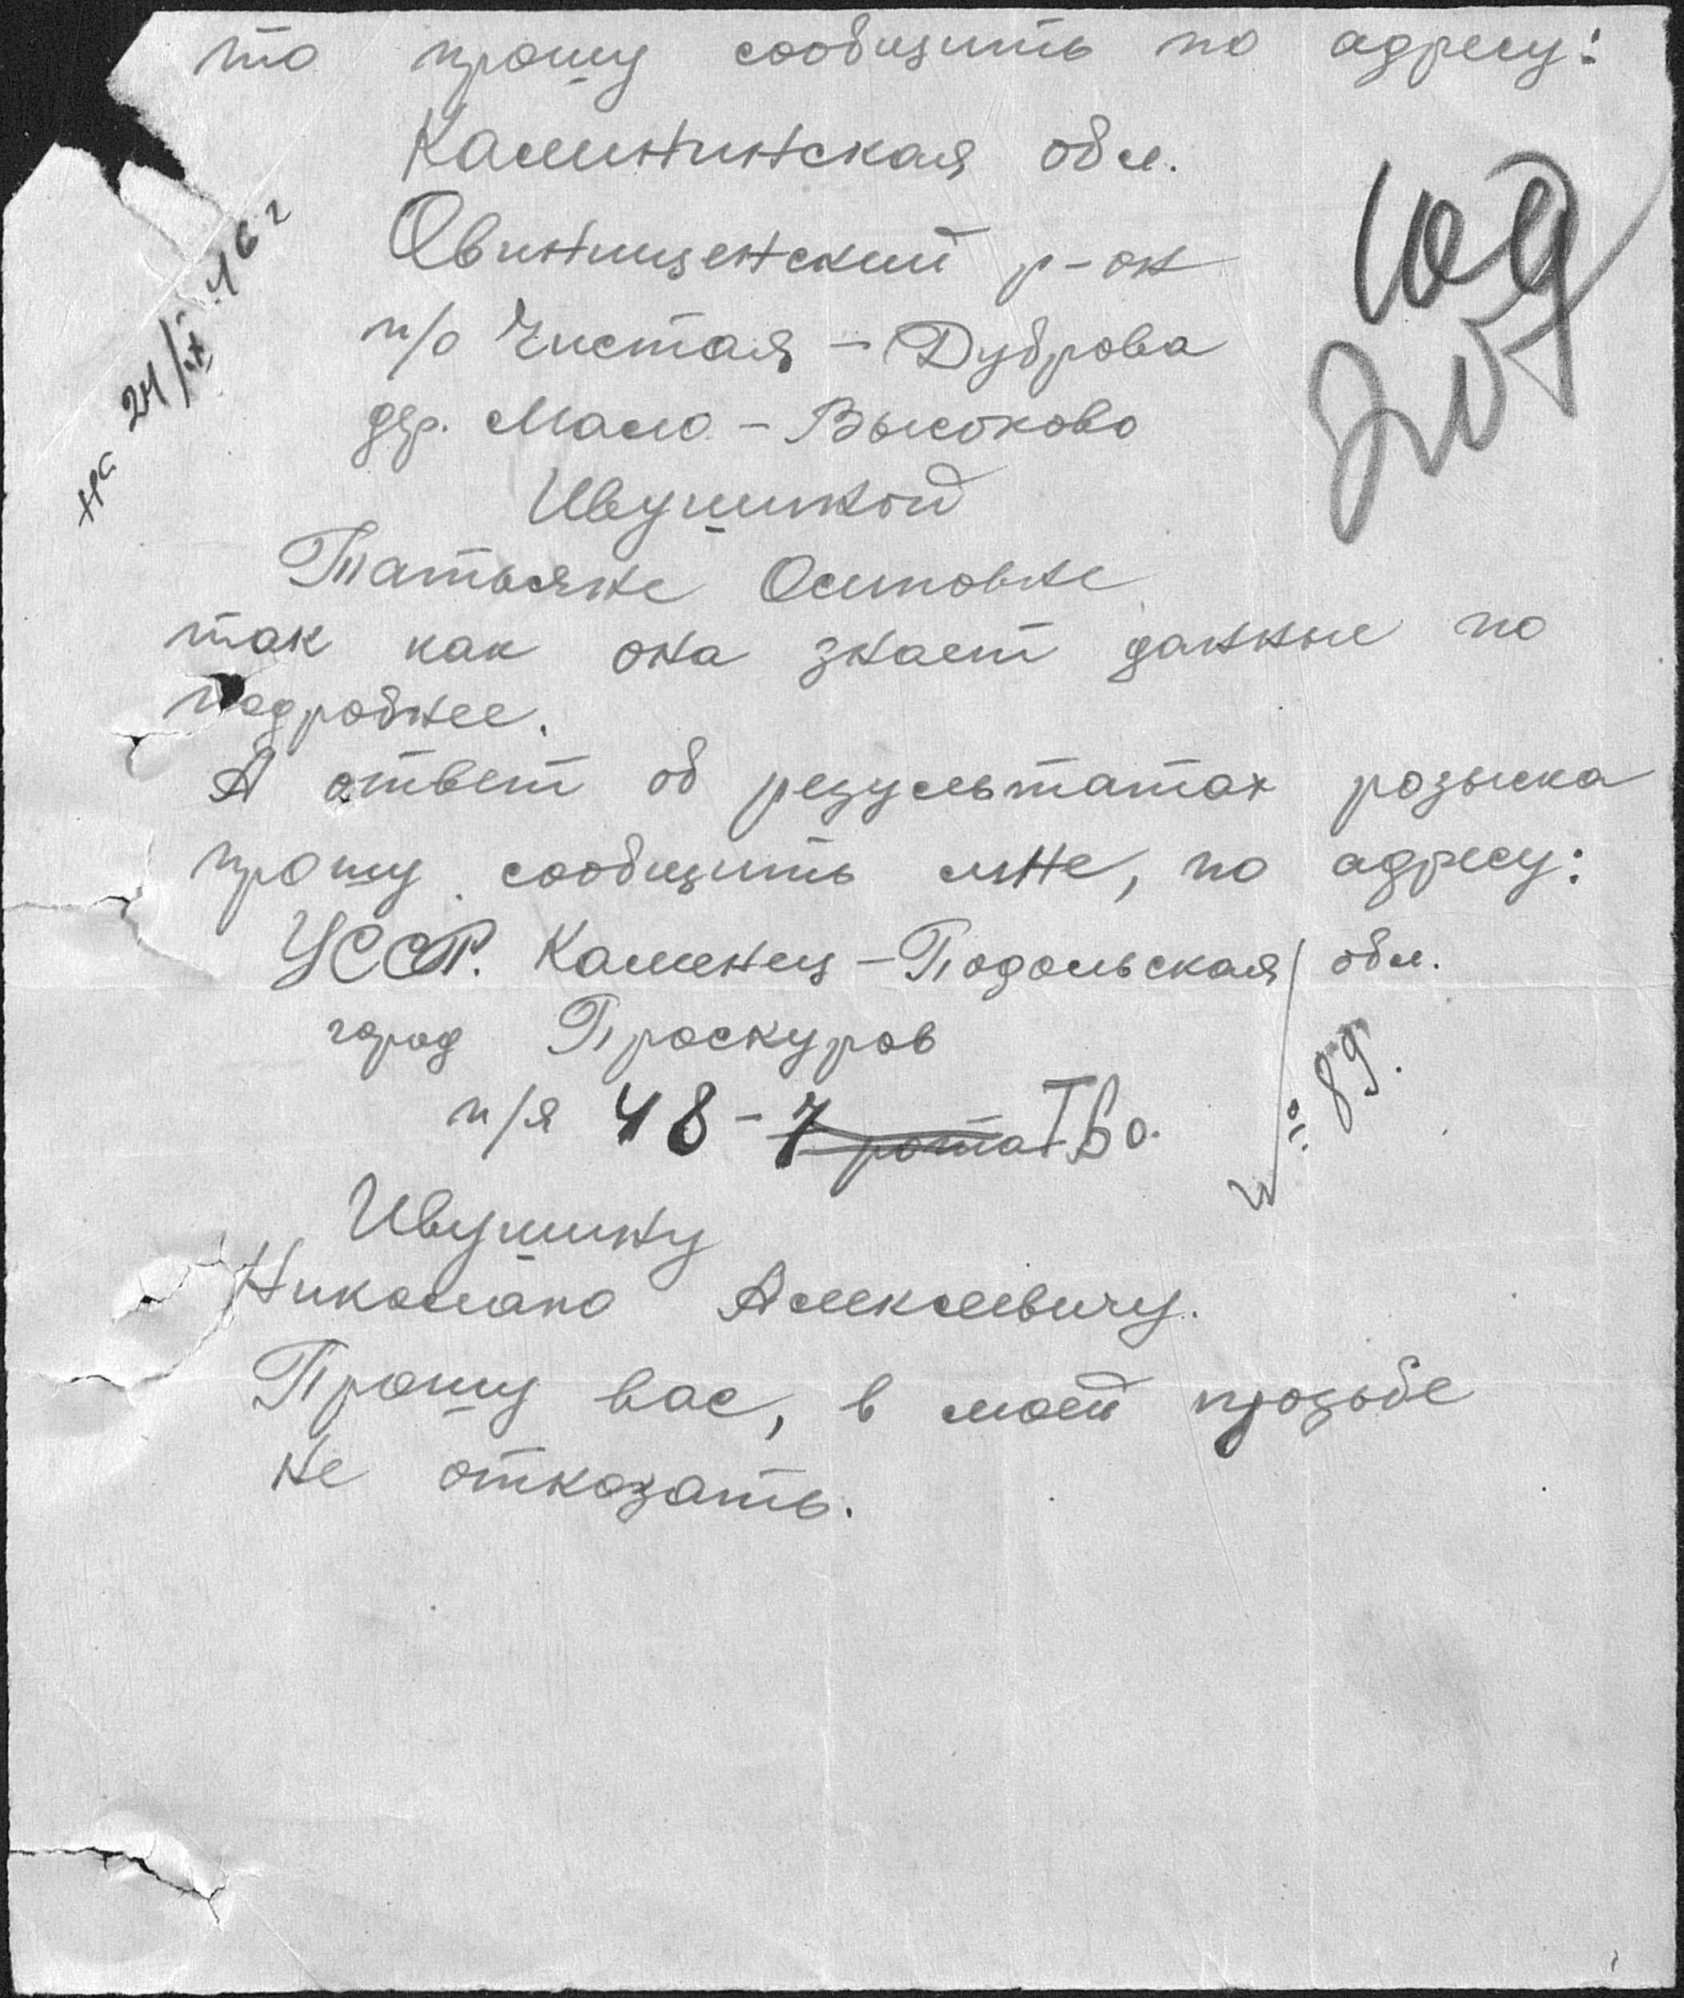 то прошу сообщить по адресу:
Калининская обл.
Овинищенский р-он
п/о Чистая - Дуброва
дер. Мало - Высоково
Ивушкной
Татьяне Осиповне
так как она знает данные по
подробнее.
А ответ об результатах розыска
прошу сообщить мне, по адресу:
УССР. Каменец - Подольская обл.
город Проскуров
п/я 48 - 7 рота
Ивушкину
Николаю Алексеевичу.
Прошу вас, в моей прозьбе
не отказать.
на 24/IX 46 г
№ 89.